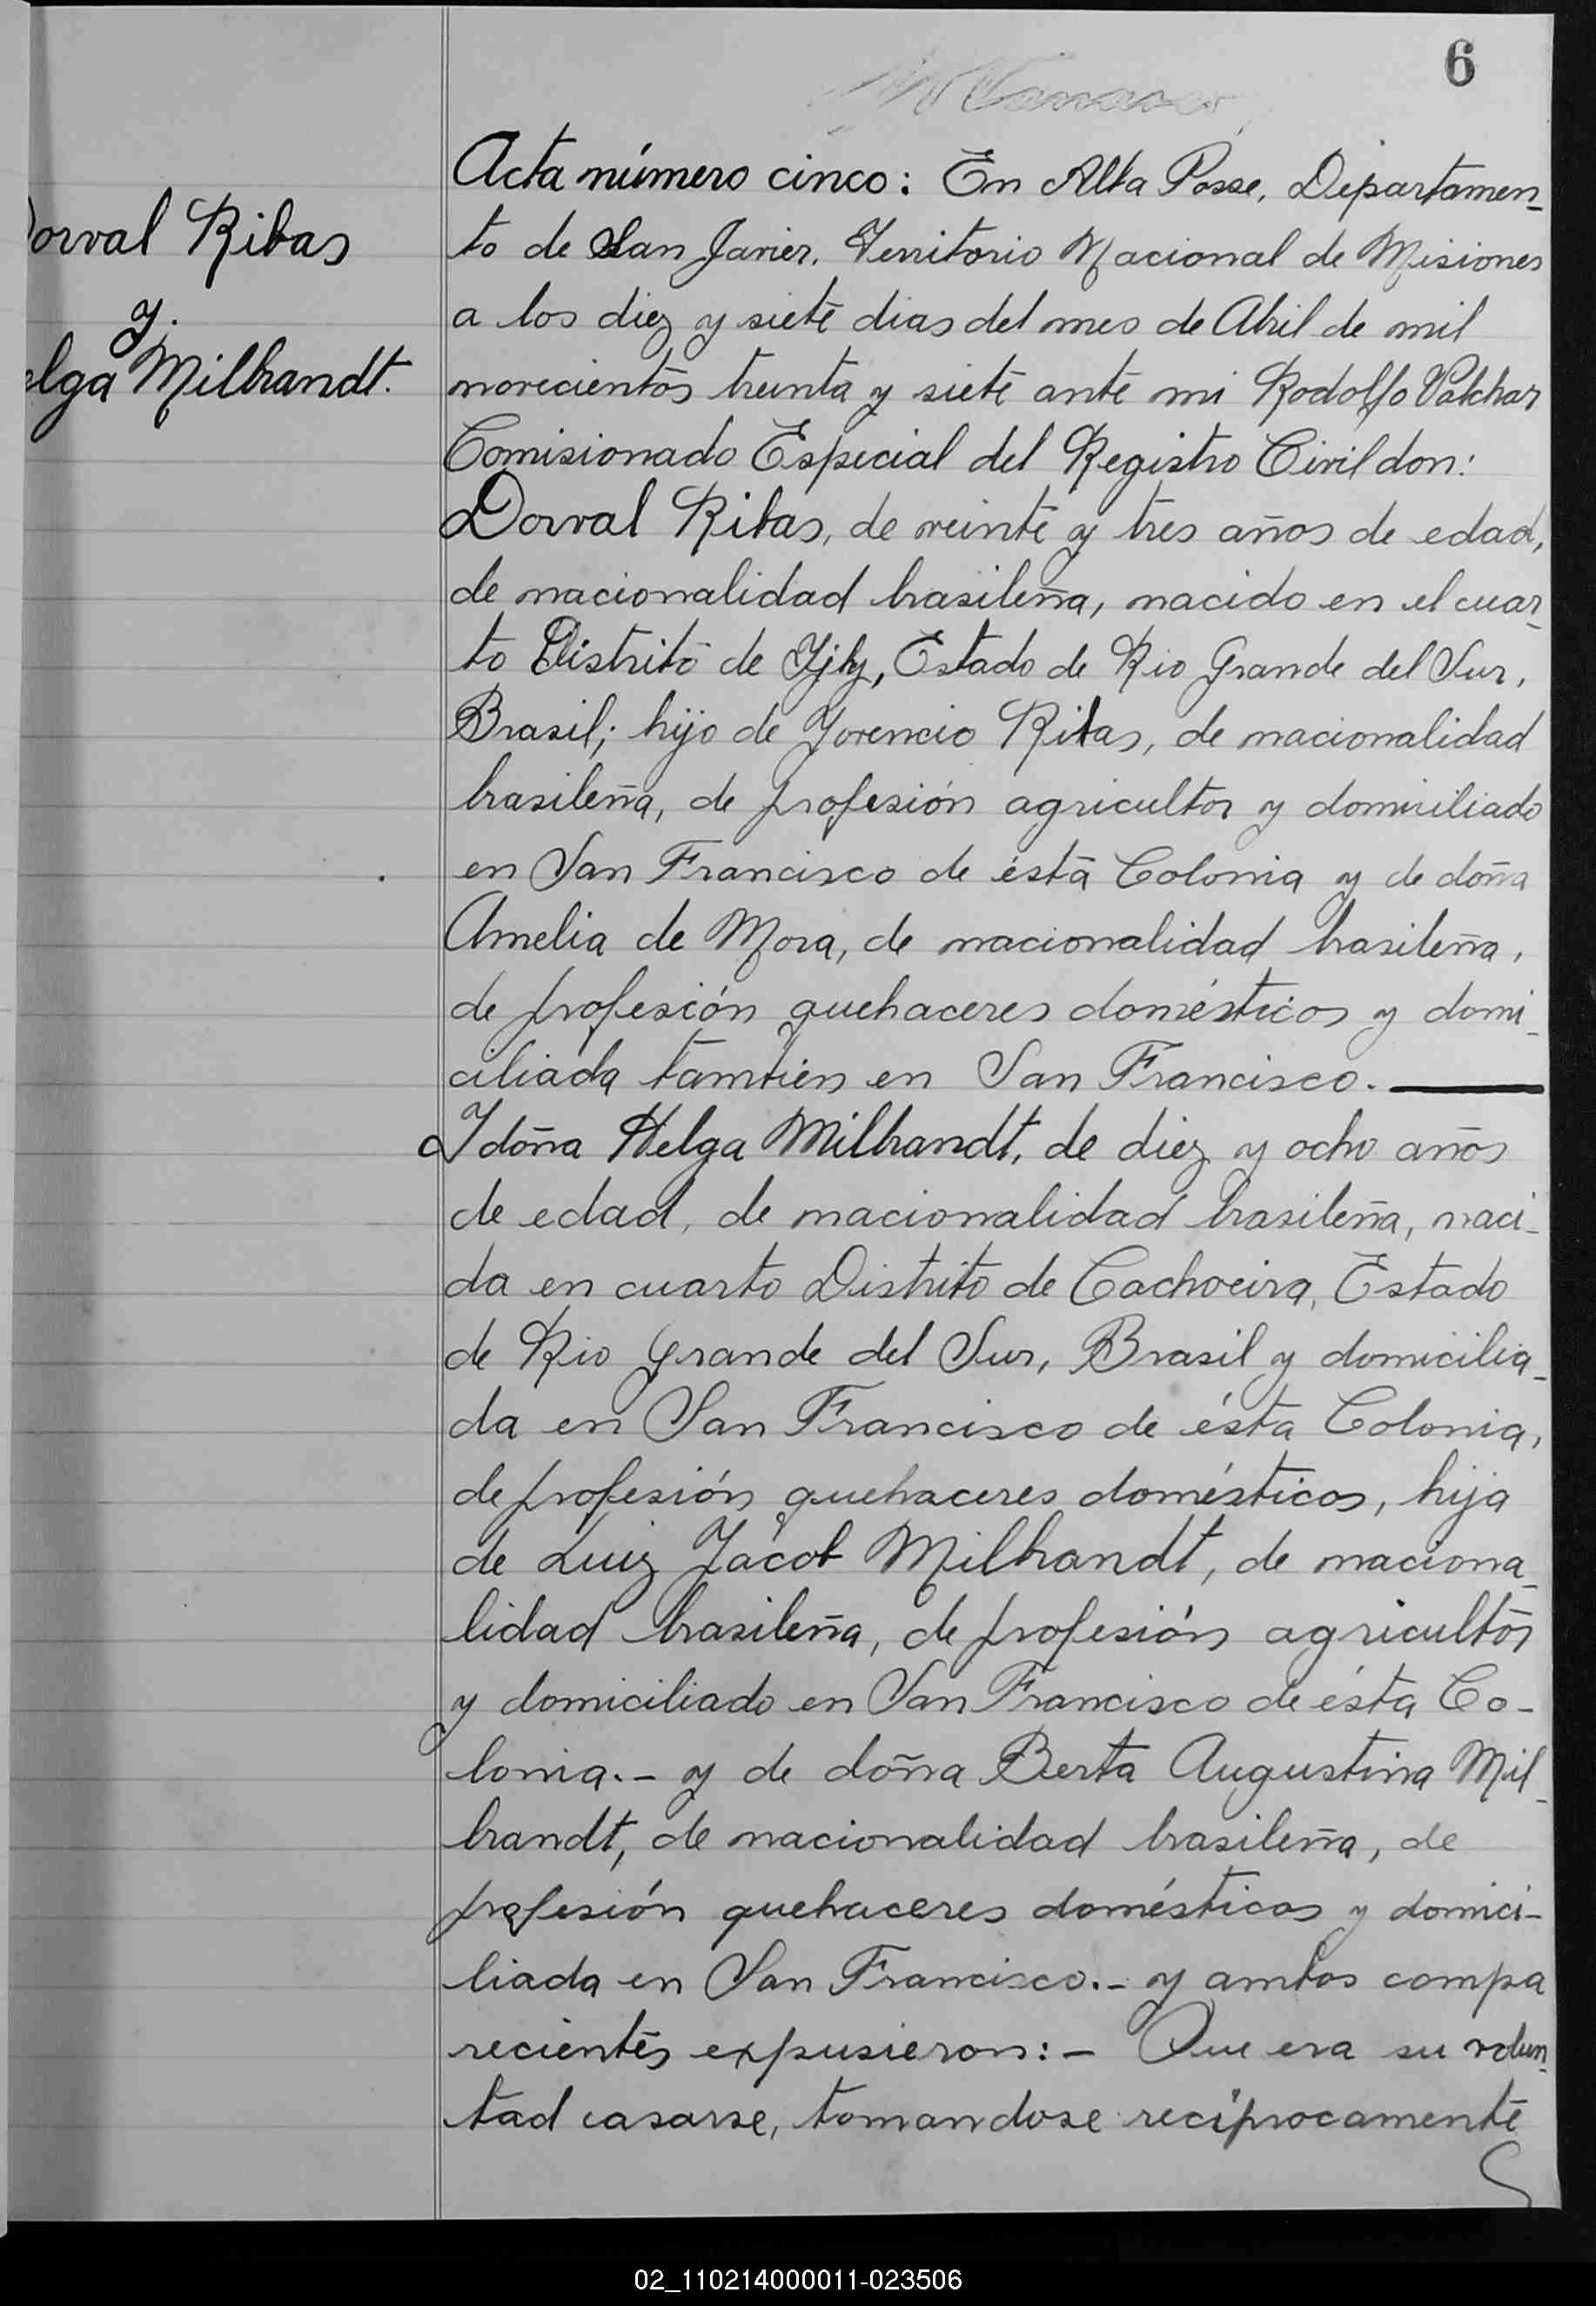 6
Dorval Ribas
y.
elga Milbrandt.
Acta número cinco: En Alba Posse, Departamen-
to de San Javier, Territorio Nacional de Misiones
a los diez y siete dias del mes de Abril de mil
novecientos treinta y siete ante mi Rodolfo
Comisionado Especial del Registro Civil don:
Dorval Ribas, de veinte y tres años de edad,
de nacionalidad brasileña, nacido en el cuar-
to Distrito de Ijhy, Estado de Rio Grande del Sur,
Brasil; hijo de Jorencio Ribas, de nacionalidad
brasileña, de profesión agricultor y domiciliado
en San Francisco de ésta Colonia y de doña
Amelia de Mora, de nacionalidad brasileña,
de profesión quehaceres domésticos y domi-
ciliada tambien en San Francisco.
Y doña Helga Milbrandt, de diez y ocho años
de edad, de nacionalidad brasileña, naci-
da en cuarto Distrito de Cachoeira, Estado
de Rio Grande del Sur, Brasil y domicilia-
da en San Francisco de ésta Colonia,
de profesión quehaceres domésticos, hija
de Luiz Jacob Milbrandt, de naciona-
lidad brasileña, de profesión agricultor
y domiciliado en San Francisco de ésta Co-
lonia.- y de doña Berta Augustina Mil-
brandt, de nacionalidad brasileña, de
profesión quehaceres domésticos y domici-
liada en San Francisco.- y ambos compa
recientes expusieron:- Que era su volun-
tad casarse, tomandose recíprocamente
02_110214000011-023506